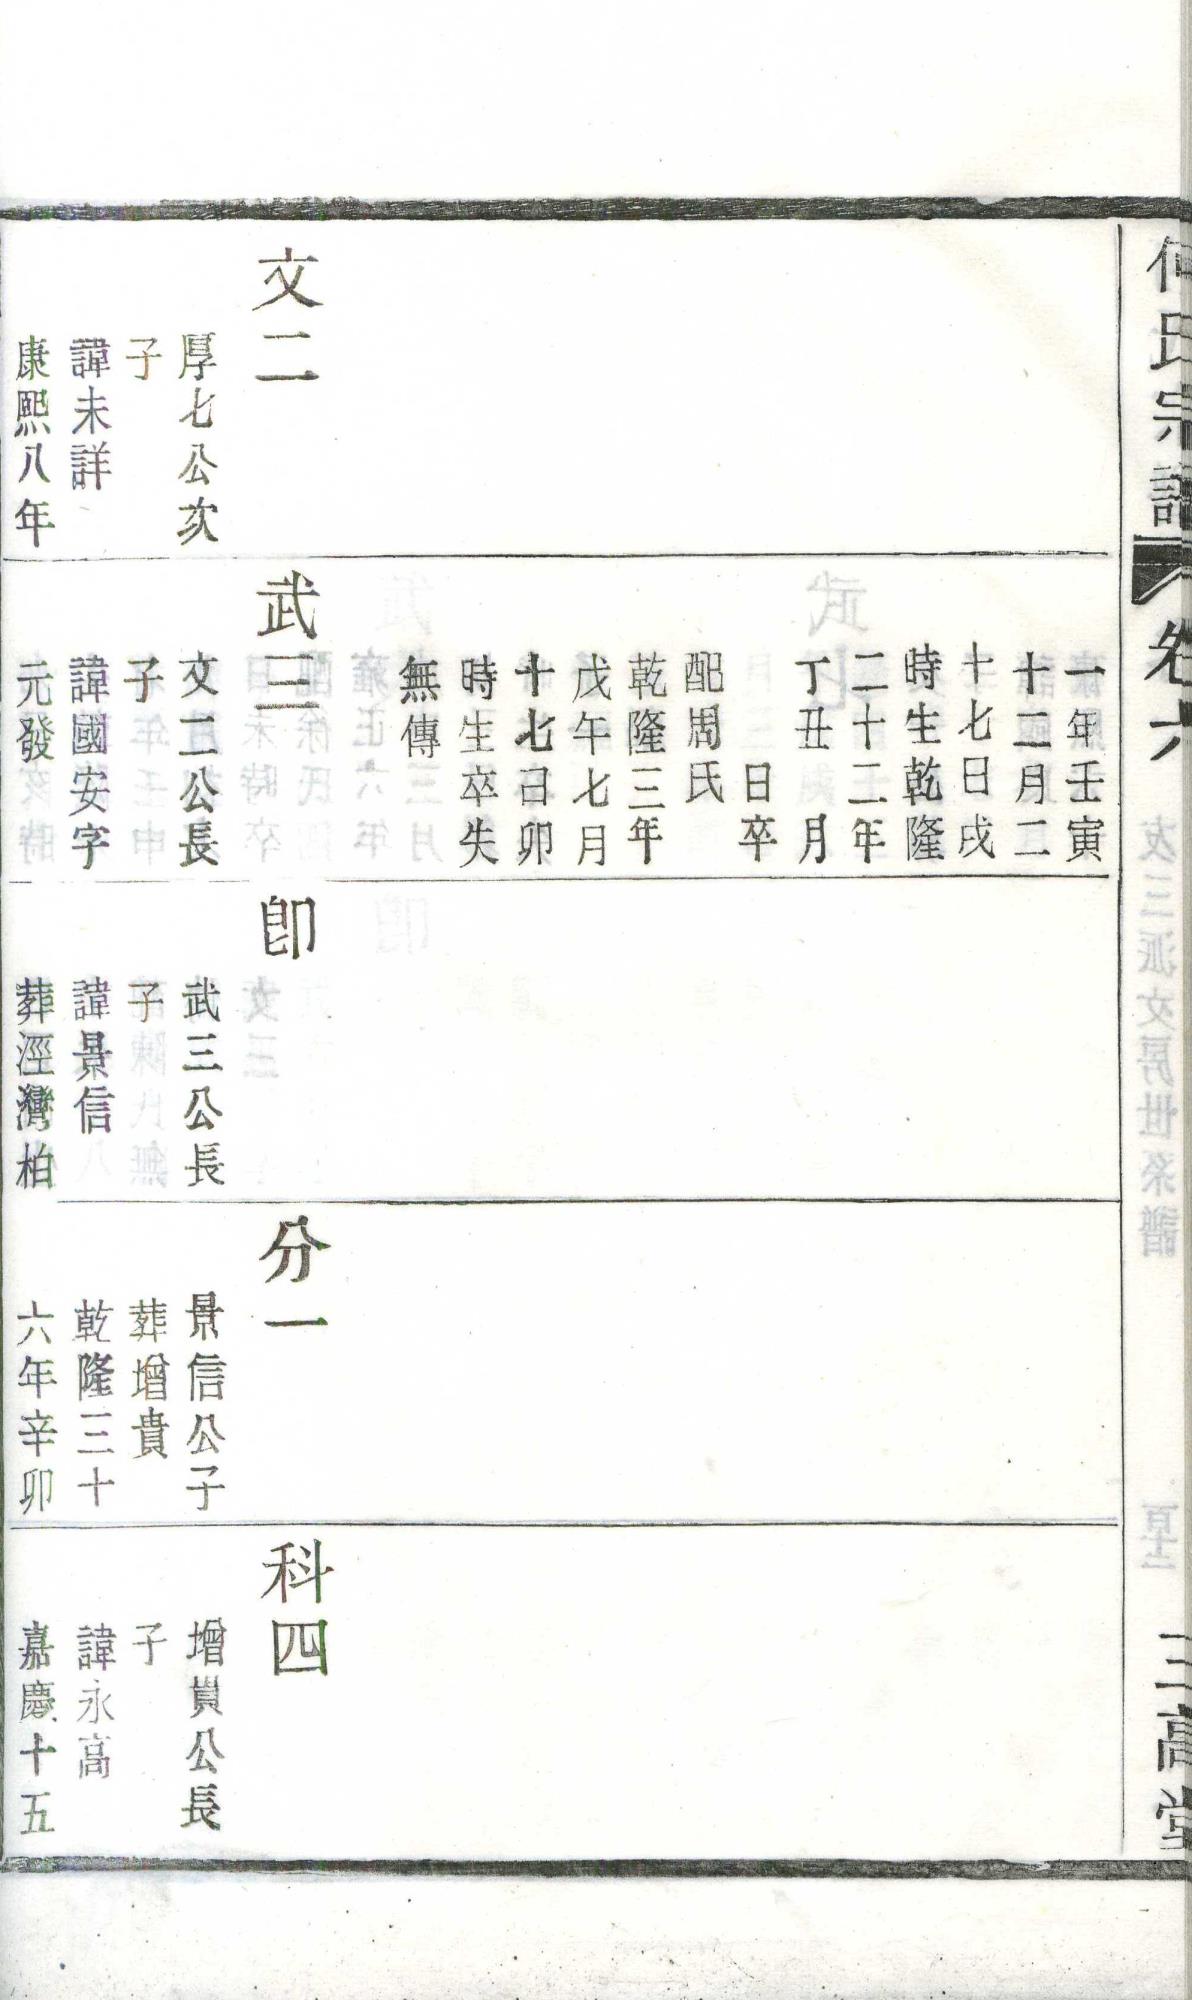 何氏宗譜
卷六
三高堂
文二
厚七公次
子
諱未詳
康熙八年
一年壬寅
十二月二
十七日戌
時生乾隆
二十二年
丁丑 月
日卒
配周氏
乾隆三年
戊午七月
十七己卯
時生卒失
無傳
武三
文二公長
子
諱國安字
元發
卽
武三公長
子
諱景信
葬涇灣柏
分一
景信公子
葬增貴
乾隆三十
六年辛卯
科四
增貴公長
子
諱永高
嘉慶十五